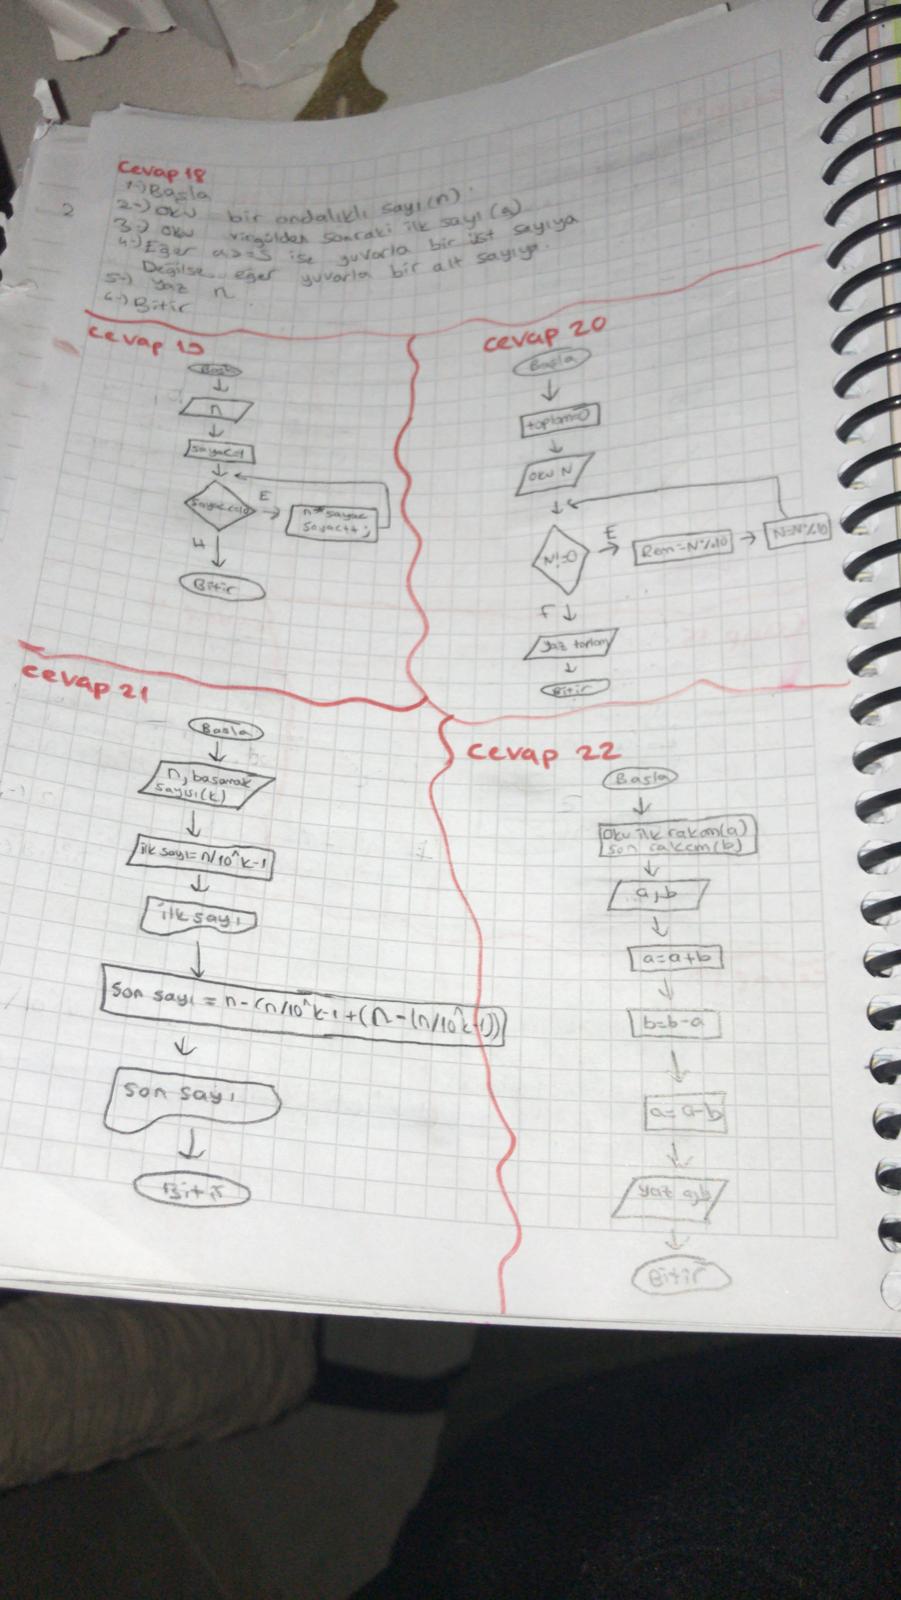 Cevap 18
1-) Başla
2-) Oku bir ondalıklı sayı (n).
3-) Oku virgülden sonraki ilk sayı (a)
4-) Eğer a>=5 ise yuvarla bir üst sayıya
Değilse eğer yuvarla bir alt sayıya.
5-) Yaz n
6-) Bitir
2
Cevap 19
n
sayac=1
E
n*sayac
sayac++;
H
Bitir
Cevap 20
Başla
toplam=0
oku N
N!=0
E
Rem=N%10
F
yaz toplam
Bitir
Cevap 21
Başla
n, basamak
sayısı(k)
ilk sayı=n/10^k-1
ilk sayı
son sayı = n-(n/10^k-1+(n-(n/10^k-1))
son sayı
Bitir
Cevap 22
Başla
oku ilk rakam(a)
son rakam(b)
a,b
a=a+b
b=b-a
a=a-b
yaz a,b
Bitir